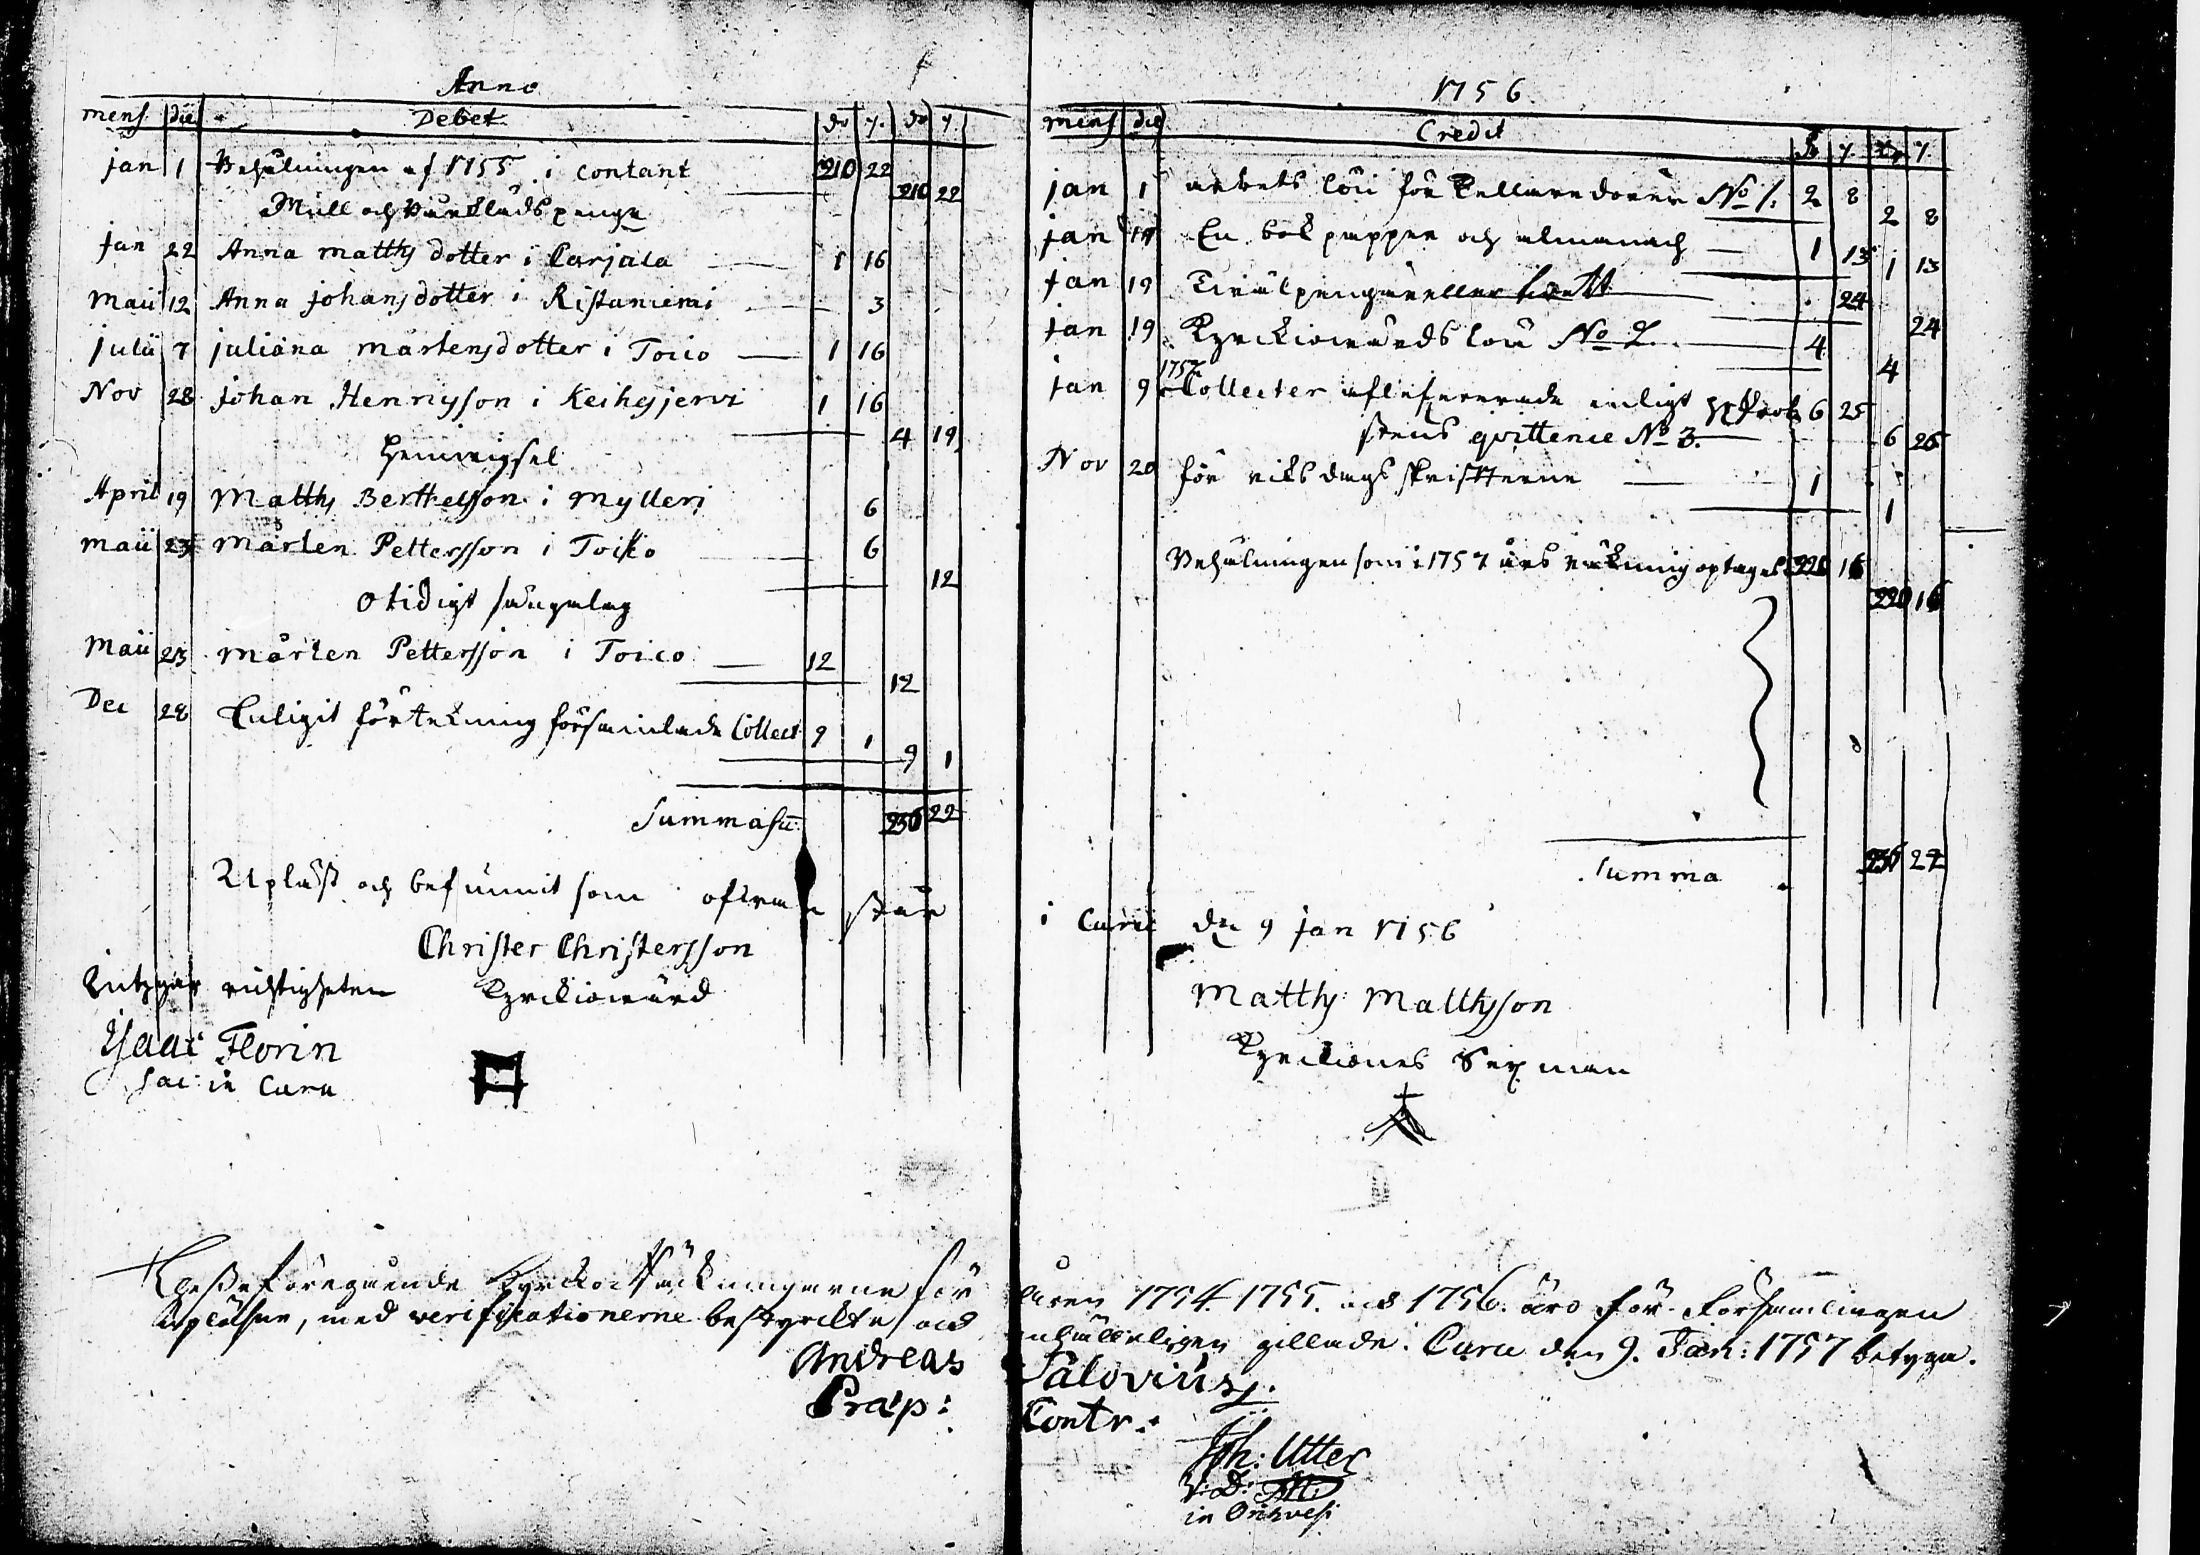 Anno
mens die Debet dr y. dr y
jan 1 Behålningen af 1755 i contant 210 22
210 22
Mull och Bårkläds penga
Jan 22 Anna Matthsdotter i Parjala 1 16
Maii 12 Anna Johansdotter i Ristaniemi 3
Julii 7 Juliana Mårtensdotter i Toico 1 16
Nov 28 Johan Henricson i Keihesjervi 1 16
4 19
Hemvigsel
April 19 Matths Berthelsson i Mylleri 6
Maii 23 Mårten Pettersson i Toiko 6
12
otidigt sängelag
Maii 23 Mårten Pettersson i Toico 12
12
Dec 28 Enligit förtekning församlade Collect 9 1
9 1
Summa Su: 236 22
Upläst och befunnit som ofvan står
Christer Christersson
Intygar richtigheten Kyrckiowärd
Isaac Florin
Sac: in Curu
1756
mens die Credit dr y. dr y.
jan 1 arbets lön för Kellare dören No 1. 2 8
2 8
jan 19 En bok papper och almanach 1 13
1 13
jan 19 24
24
jan 19 Kyrckiowärds lön No 2. 4
4
jan 9 1757 Collecter aflefererade enligt H Prob 6 25
stens qvittence No 3. 6 25
Nov 20 för riksdags skrifterne 1
1
Behålningen som i 1757 års räkning optages 220 16
220 16
Summa 236 22
i Curu den 9 Jan 1756
Matths Matthsson
Kyrckiones Sexman
Desse föregående Kyrckio Räkningarne för åren 1754. 1755. och 1756. äro för Församlingen
upläsne, med verificationerne bestyrckte och enhälleligen gillade. Curu den 9. Jan: 1757 betyga.
Andreas Salovius.
Præp: Contr:
Joh: Utter
V: D: M:
in Orihvesi